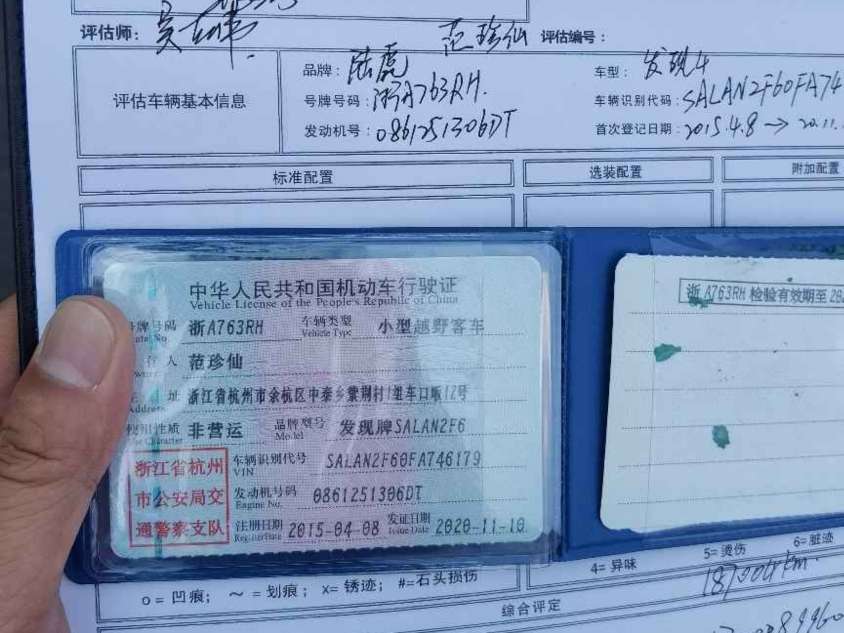 评估师：
范珍仙 评估编号：
评估车辆基本信息
品牌：陆虎
车型：发现4
号牌号码：浙A763RH.
车辆识别代码：SALAN2F60FA74
发动机号：0861251306DT
首次登记日期：2015.4.8→20.11.
标准配置
选装配置
附加配置
中华人民共和国机动车行驶证
Vehicle License of the People's Republic of China
号牌号码 浙A763RH 车辆类型 小型越野客车
Plate No. Vehicle Type
人 范珍仙
Owner
址 浙江省杭州市余杭区中泰乡紫荆村1组车口畈12号
Address
使用性质 非营运 品牌型号 发现牌SALAN2F6
Use Character Model
浙江省杭州
市公安局交
通警察支队
车辆识别代号 SALAN2F60FA746179
VIN
发动机号码 0861251306DT
Engine No.
注册日期 2015-04-08 发证日期 2020-11-10
Register Date Issue Date
浙A763RH 检验有效期至 202
o=凹痕； ～=划痕； x=锈迹； #=石头损伤
4=异味 5=烫伤 6=脏迹
综合评定